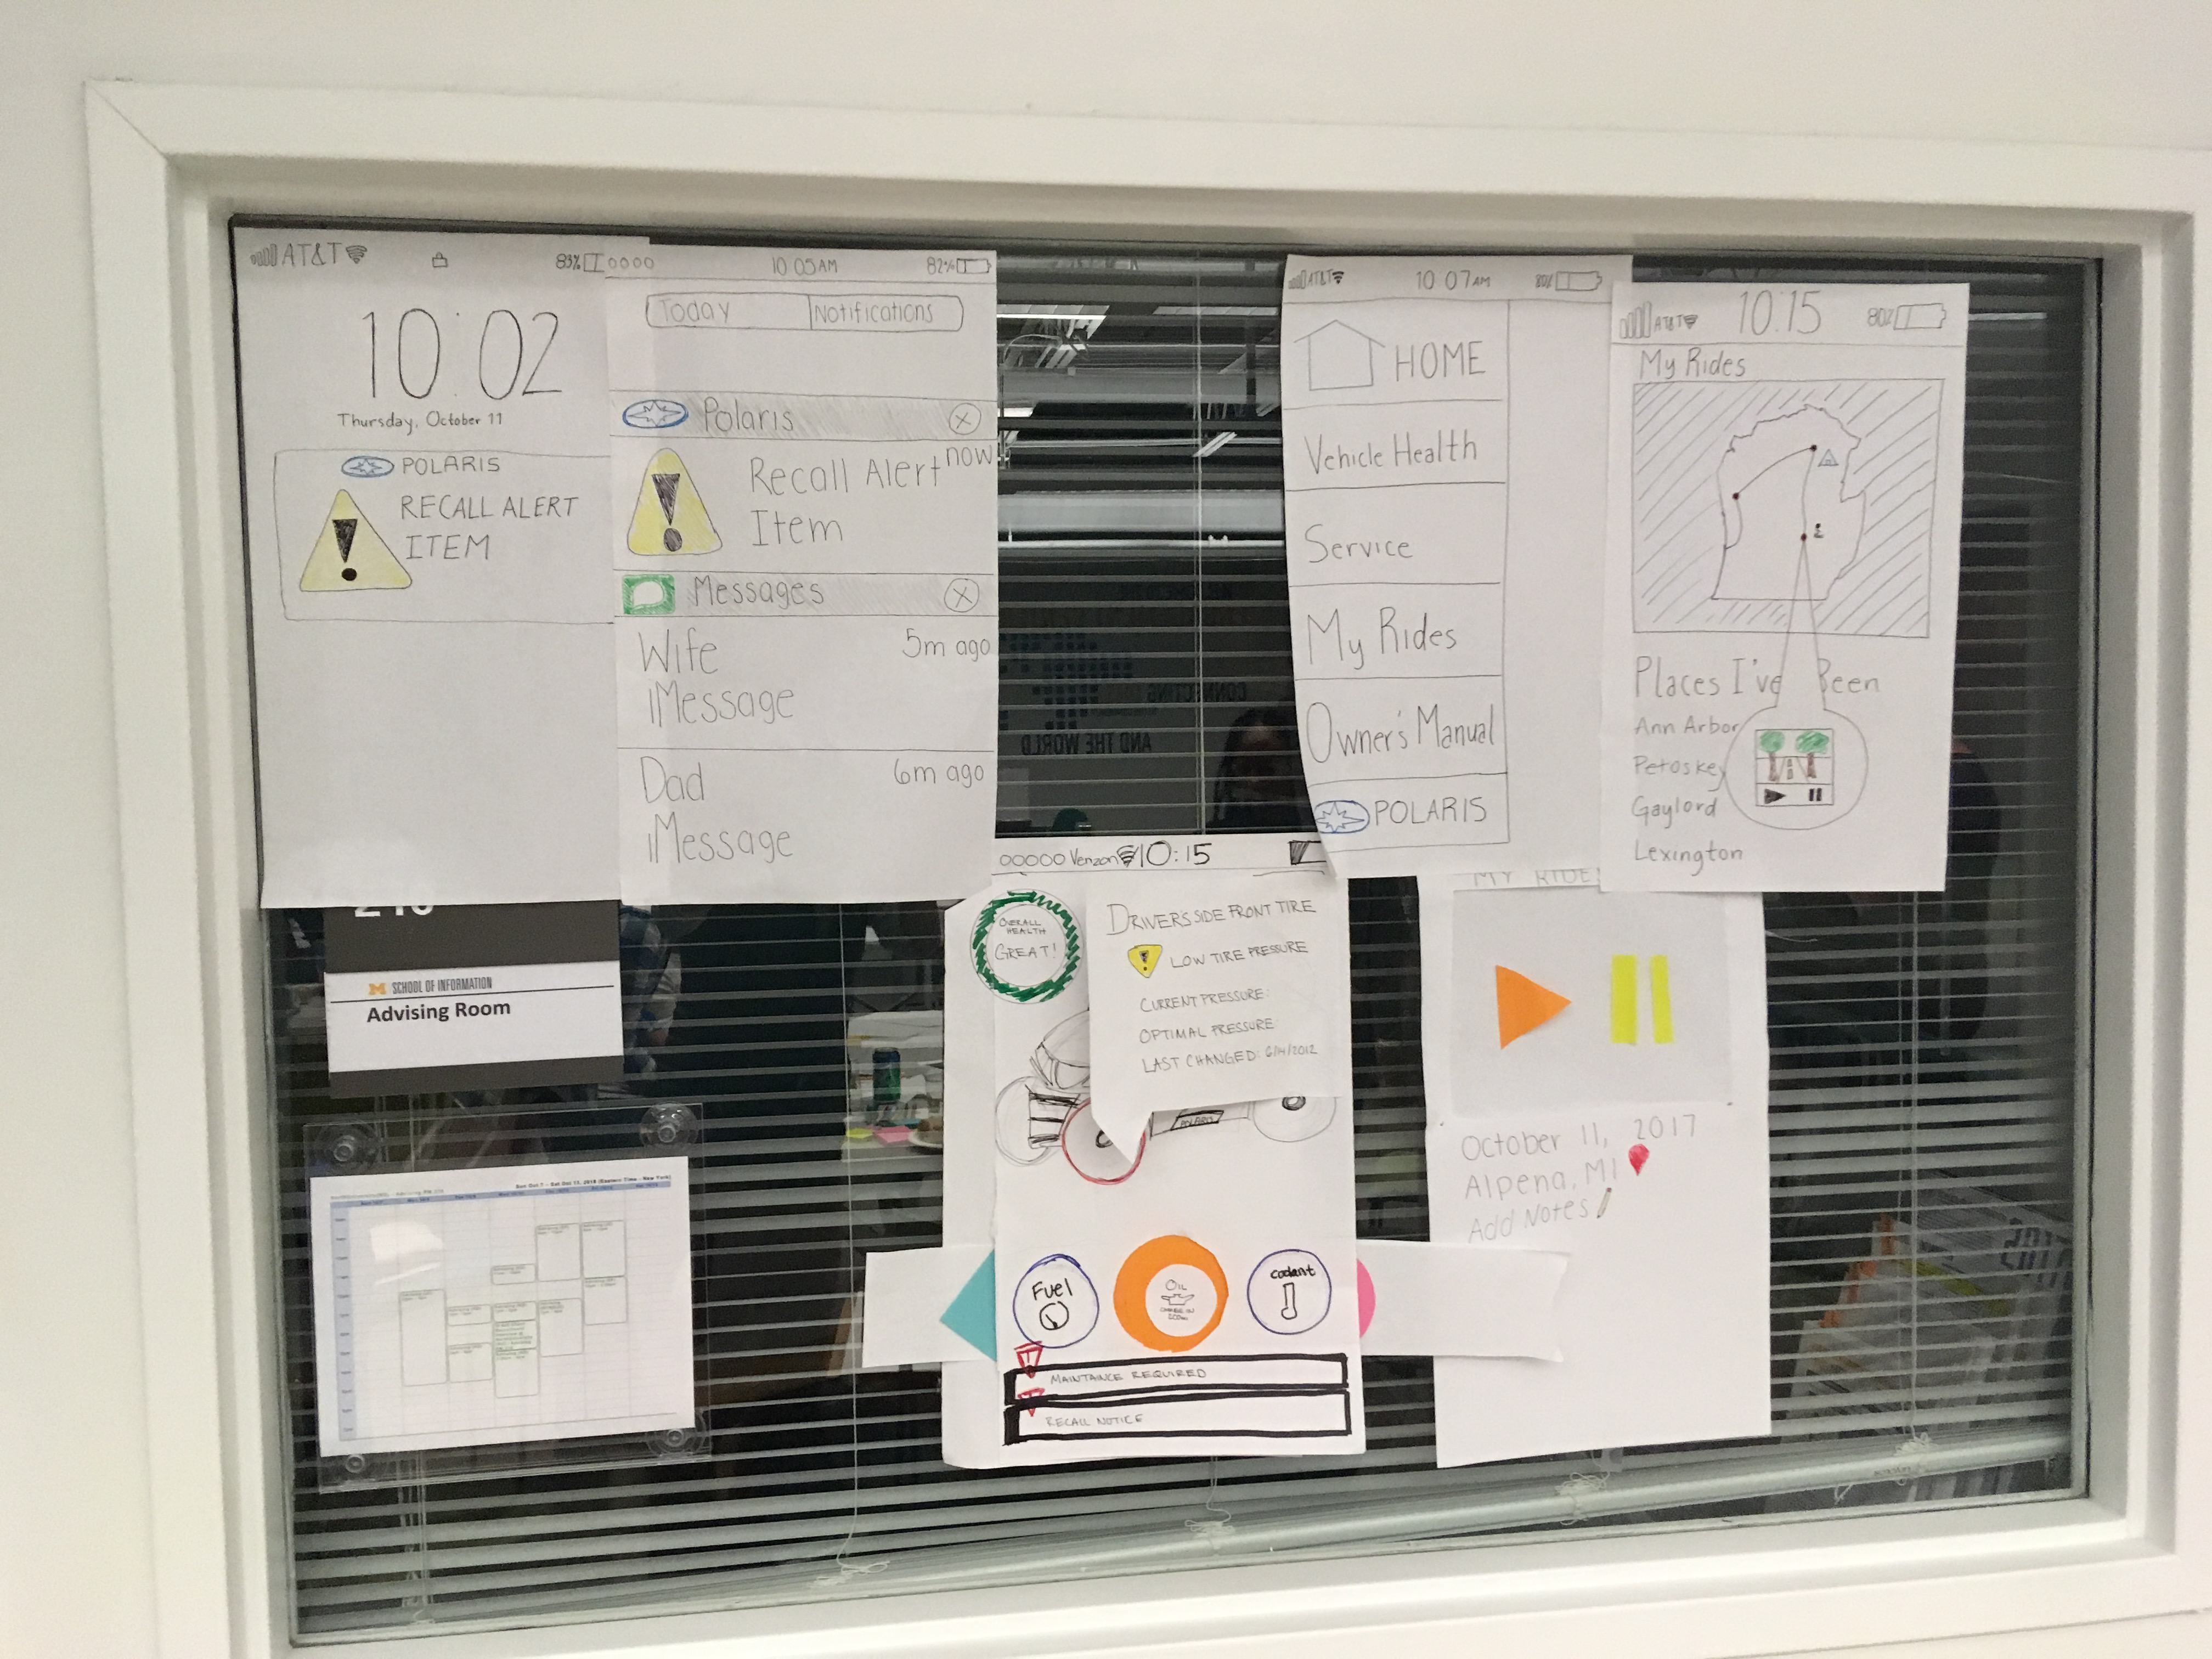 AT&T
83%
10:02
Thursday, October 11
POLARIS
RECALL ALERT
ITEM
10 05AM
82%
Today
Notifications
Polaris
Recall Alert
now
Item
Messages
Wife
5m ago
iMessage
Dad
6m ago
iMessage
AT&T
10 07AM
80%
HOME
Vehicle Health
Service
My Rides
Owner's Manual
POLARIS
AT&T
10:15
80%
My Rides
Places I've Been
Ann Arbor
Petoskey
Gaylord
Lexington
CONNECTING
AND THE WORLD
SCHOOL OF INFORMATION
Advising Room
Sun Oct 7 - Sat Oct 13, 2018 (Eastern Time - New York)
Verizon
10:15
OVERALL
HEALTH
GREAT!
DRIVERS SIDE FRONT TIRE
LOW TIRE PRESSURE
CURRENT PRESSURE:
OPTIMAL PRESSURE
LAST CHANGED: 6/4/2012
POLARIS
Fuel
OIL
CHANGE IN
coolant
MAINTAINCE REQUIRED
RECALL NOTICE
MY RIDE
October 11, 2017
Alpena, MI
Add Notes